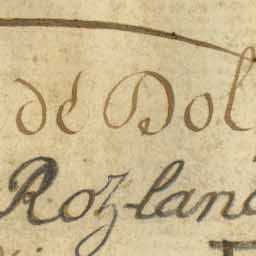 de Dol
Rozland